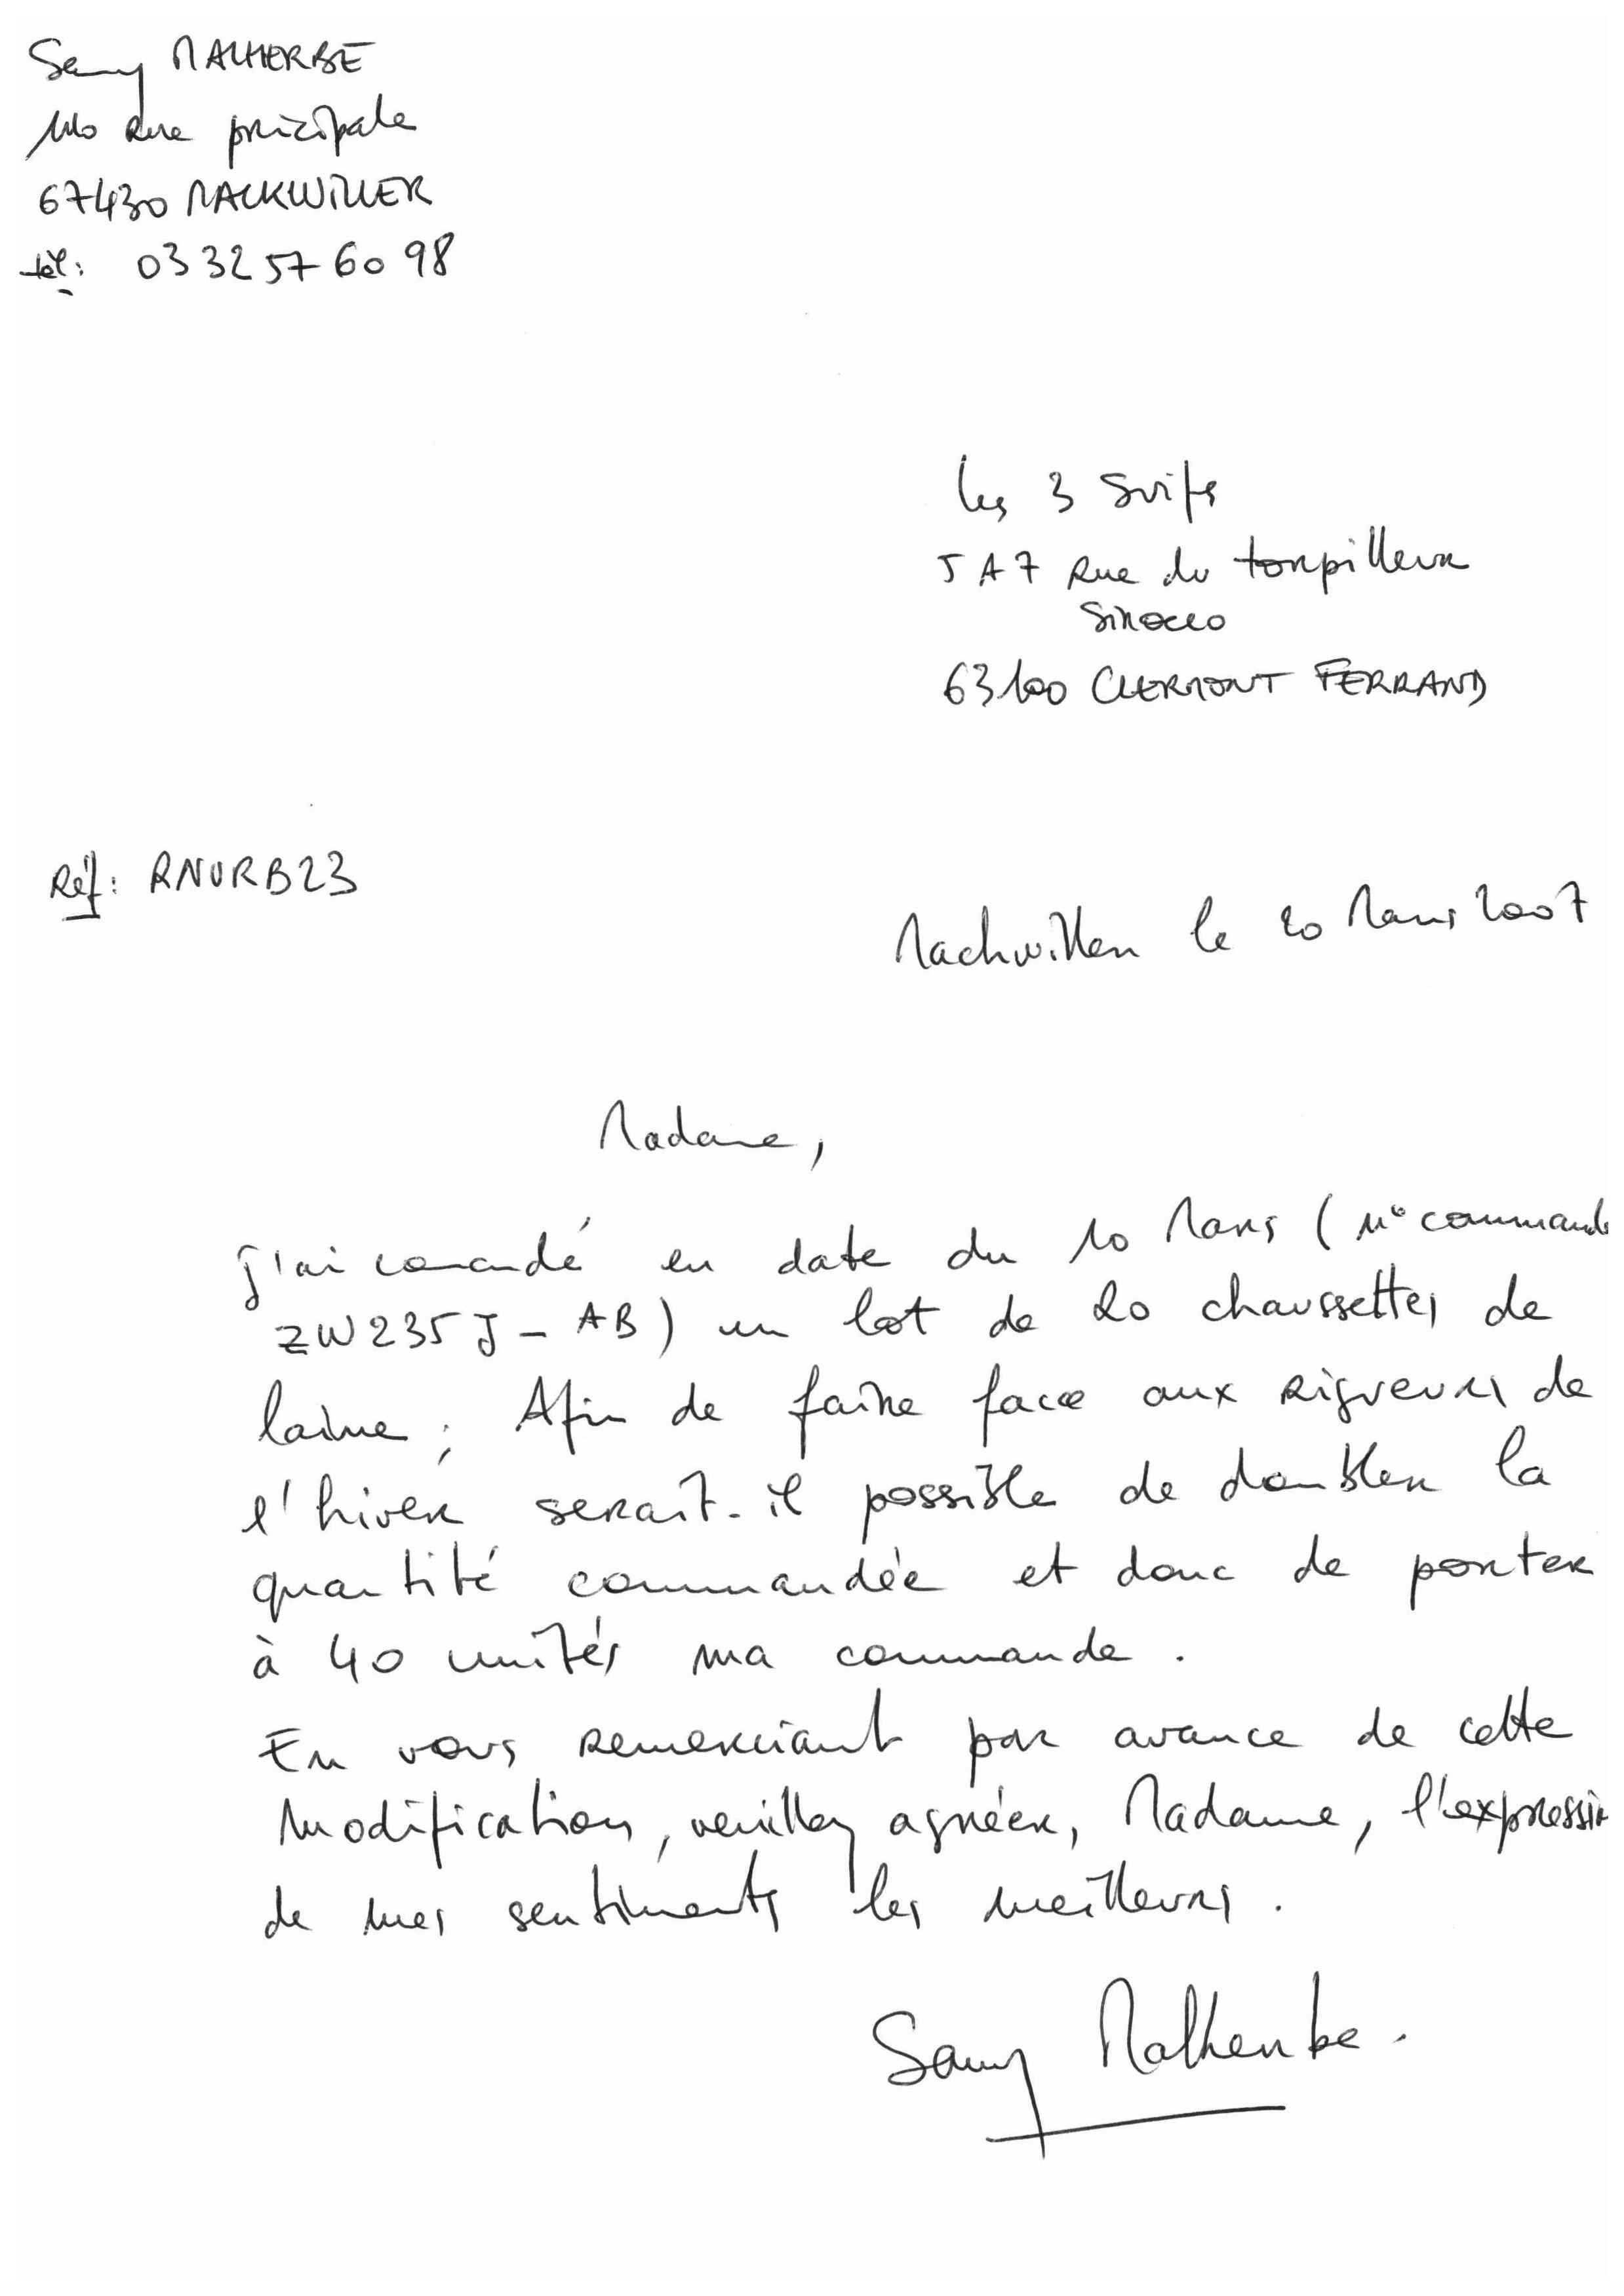 Samy MALHERBE
140 Rue pricipale
67430 MACKWILLER
tél: 03 32 57 60 98
Les 3 Suifs
5 A 7 Rue du torpilleur
Sirocco
63100 CLERMONT FERRAND
Réf: RNURB23
Mackwiller le 20 Mars 2007
Madame,
j'ai comandé en date du 10 Mars (n° commande
ZW235J-AB) un lot de 20 chaussettes de
laine; Afin de faire face aux rigveurs de
l'hiver serait-il possible de doubler la
quantité commandée et donc de porter
à 40 unités ma commande.
En vous remerciant par avance de cette
Modification, veuillez agréer, Madame, l'expression
de mes sentiments les meilleurs.
Samy Malherbe.